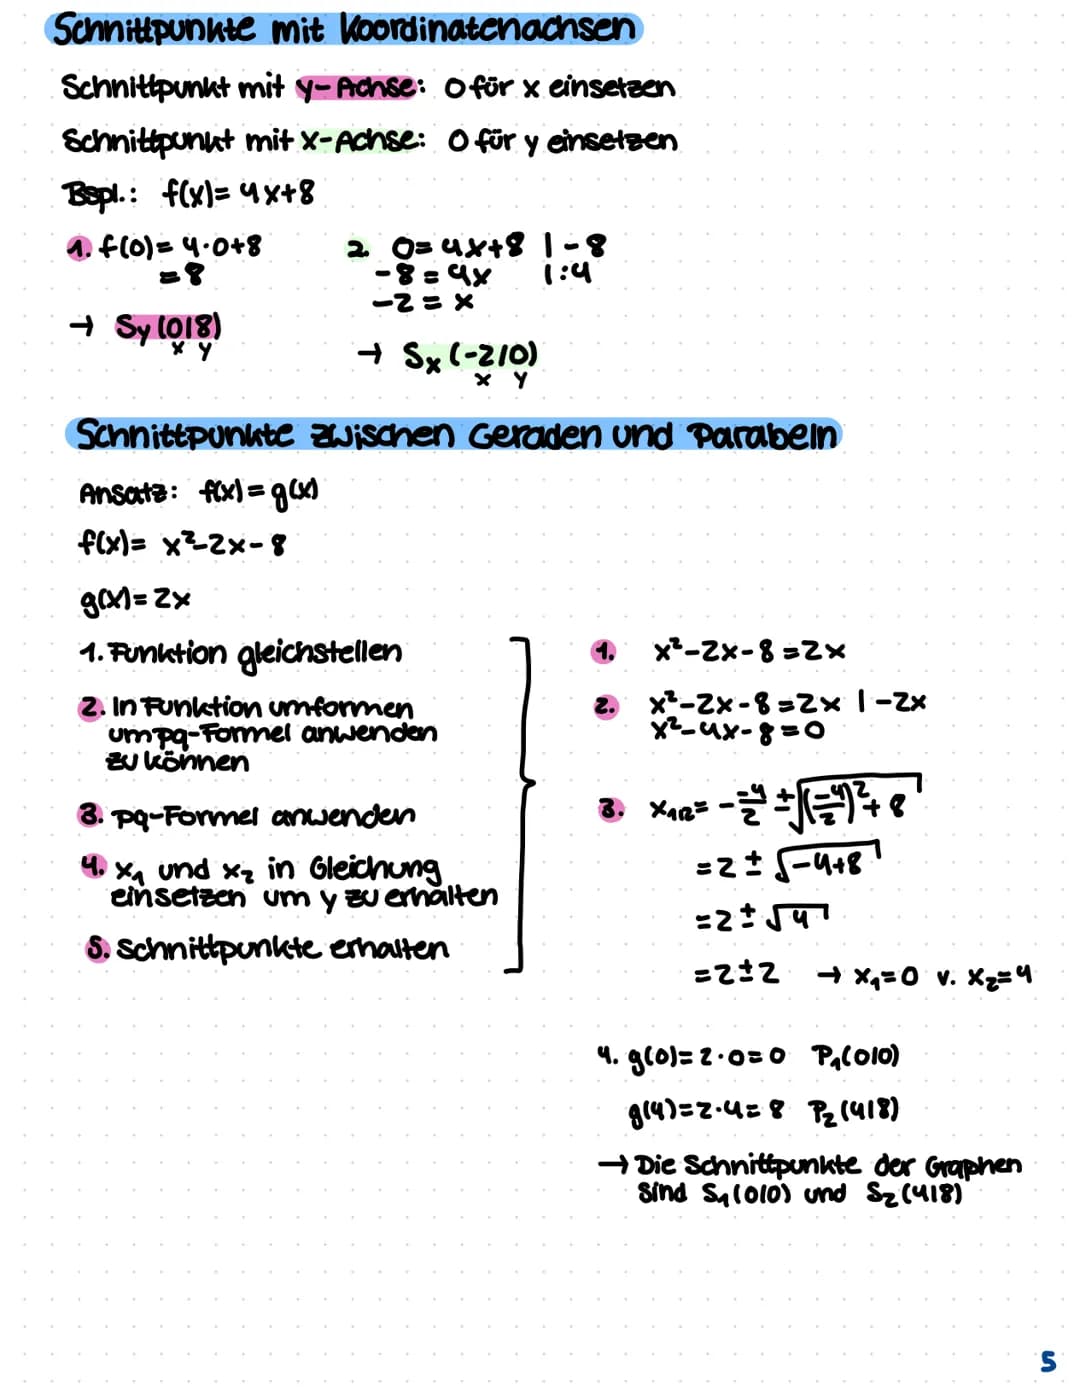 Schnittpunkte mit Koordinatenachsen
Schnittpunkt mit y-Achse: 0 für x einsetzen
Schnittpunkt mit x-Achse: 0 für y einsetzen
Bspl.: f(x)= 4x+8
1. f(0)= 4·0+8
=8
→ Sy (0|8)
x y
2. 0=4x+8 |-8
-8=4x |:4
-2=x
→ Sx (-2|0)
x y
Schnittpunkte zwischen Geraden und Parabeln
Ansatz: f(x)=g(x)
f(x)= x²-2x-8
g(x)=2x
1. Funktion gleichstellen
2. In Funktion umformen
um pq-Formel anwenden
zu können
3. pq-Formel anwenden
4. x₁ und x₂ in Gleichung
einsetzen um y zu erhalten
5. Schnittpunkte erhalten
1. x²-2x-8=2x
2. x²-2x-8=2x |-2x
x²-4x-8=0
3. x₁/₂= -\frac{-4}{2} ± √((\frac{-4}{2})²+8)
=2 ± √(-4+8)
=2 ± √4
=2±2 → x₁=0 v. x₂=4
4. g(0)=2·0=0 P₁(0|0)
g(4)=2·4=8 P₂(4|8)
→ Die Schnittpunkte der Graphen
sind S₁(0|0) und S₂(4|8)
5